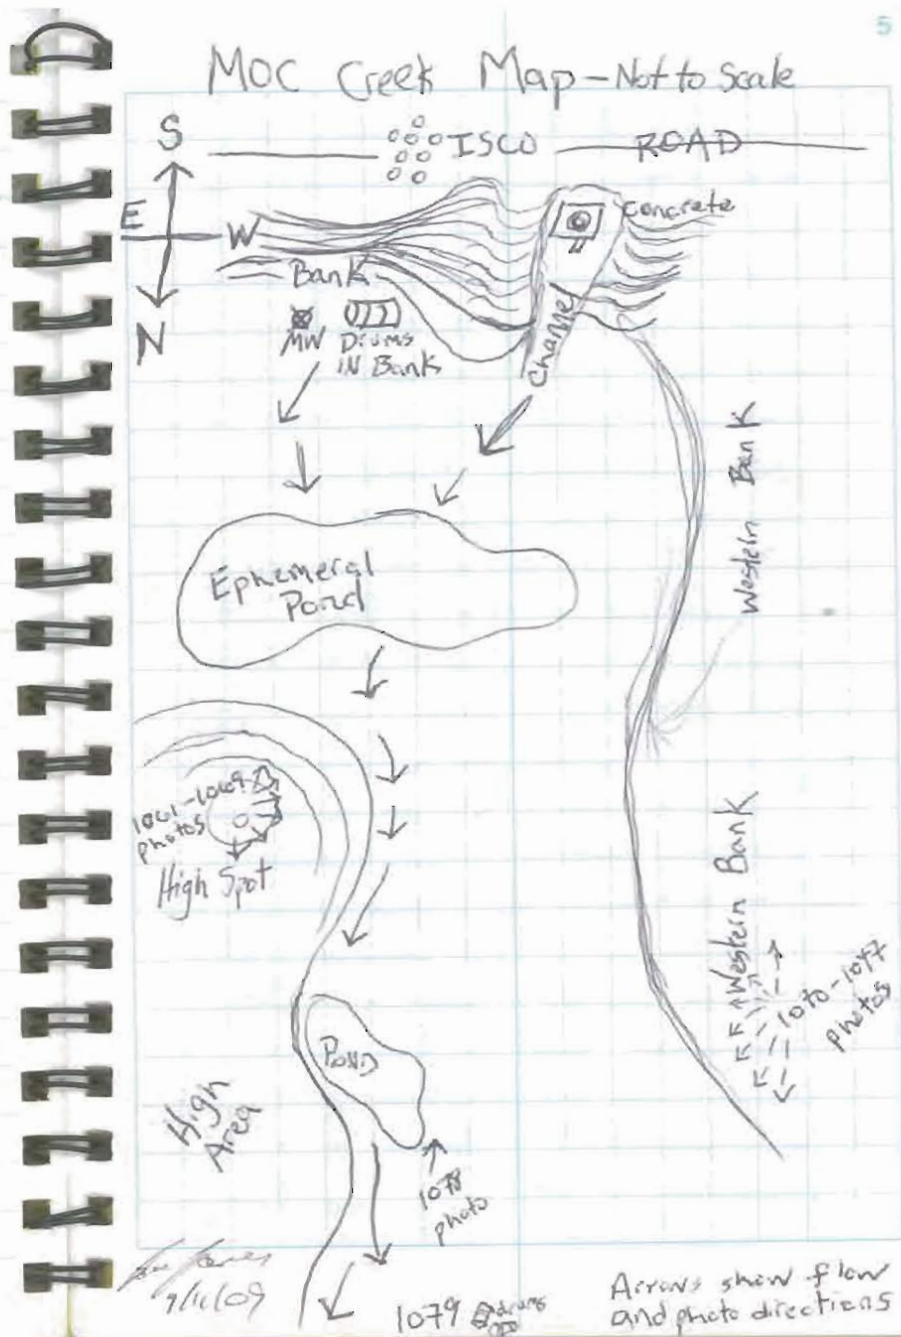 5
MOC Creek Map - Not to Scale
S
ISCO
ROAD
E
W
Concrete
Bank
N
MW
Drums
IN Bank
Channel
Western Bank
Ephemeral
Pond
1061-1069
photos
High Spot
Western Bank
1070-1077
photos
Pond
High
Area
1078
photo
1079 drums
Arrows show flow
and photo directions